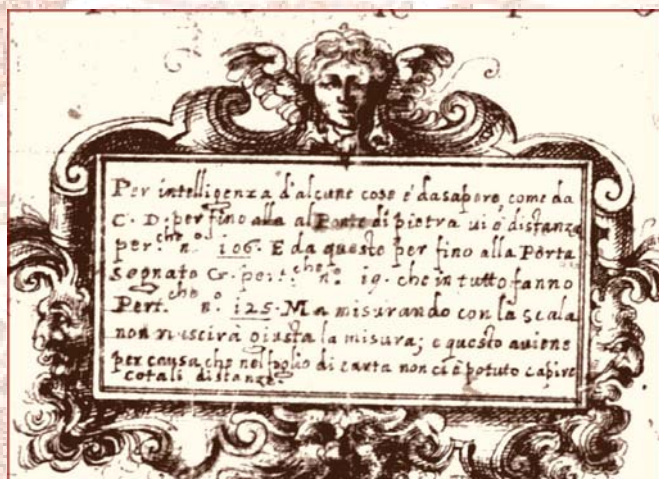 Per intelligenza d'alcune cose é da sapere, come da
C. D. per fino alla al Ponte di pietra ui é distanza
per.che n.o 106. E da questo per fino alla Porta
segnato G. pert.che n.o 19. che in tutto fanno
Pert.che n.o 125. Ma misurando con la scala
non riuscirà giusta la misura; e questo auiene
per causa, che nel foglio di carta non ci é potuto capire
cotali distanze